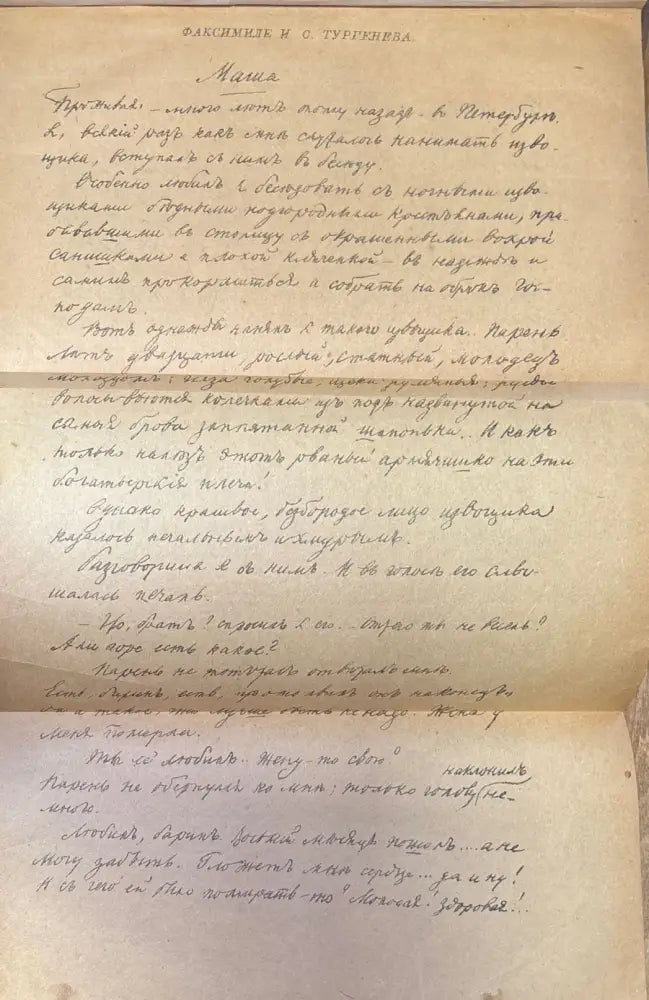 ФАКСИМИЛЕ И С. ТУРГЕНЕВА.
Маша
Проживая, – много лѣтъ тому назадъ – в Петербургѣ,
я, всякій разъ какъ мнѣ случалось нанимать изво-
щика, вступалъ съ нимъ въ бесѣду.
Особенно любилъ я бесѣдовать съ ночными изво-
щиками бѣдными подгородными крестьянами, при-
бывавшими въ столицу съ окрашенными вохрой
санишками и плохой клячёнкой – въ надеждѣ и
самимъ прокормиться и собрать на оброкъ гос-
подамъ.
Вотъ однажды нанялъ я такого извощика.. Парень
лѣтъ двадцати, рослый, статный, молодецъ
молодцомъ; глаза голубые, щоки румяныя; русые
волосы вьются колечками изъ подъ надвинутой на
самыя брови заплатанной шапоньки.. И какъ
только налѣзъ этотъ рваный армячишко на эти
богатырскія плеча!
Однако красивое, безбородое лицо извощика
казалось печальнымъ и хмурымъ.
Разговорился я съ нимъ. И въ голосѣ его слы-
шалась печаль.
– Что, братъ? спросилъ я его. – Отчего ты не веселъ?
Али горе есть какое?
Парень не тотчасъ отвѣчалъ мнѣ.
Есть, баринъ, есть, промолвилъ онъ наконецъ,
да и такое, что лучше быть не надо. Жена у
меня померла.
Ты её любилъ.. жену-то свою?
наклонилъ
Парень не обернулся ко мнѣ; только голову не-
много.
Любилъ, баринъ. Восьмой мѣсяцъ пошолъ.... а не
могу забыть. Гложетъ мнѣ сердце... да и ну!
И съ чего ей было помирать-то? Молодая! здоровая!..